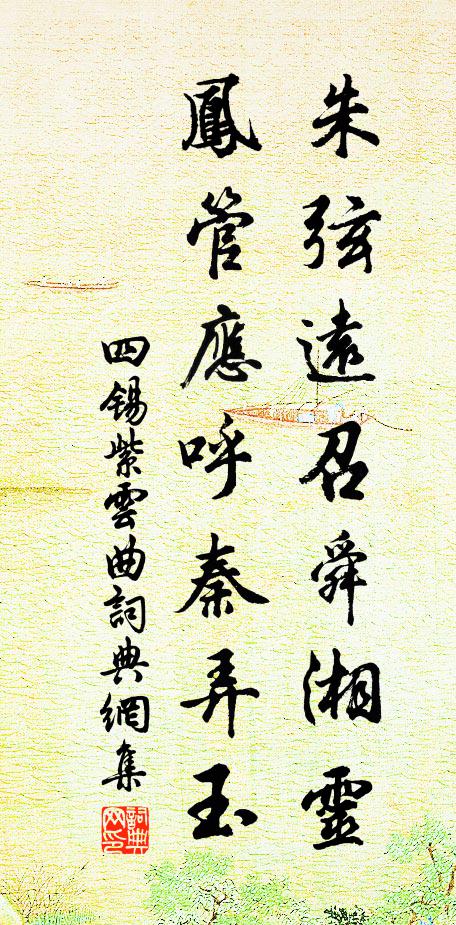 朱弦遠召舜湘靈
鳳管應呼秦弄玉
四錫紫雲曲詞典網集
詞典網印